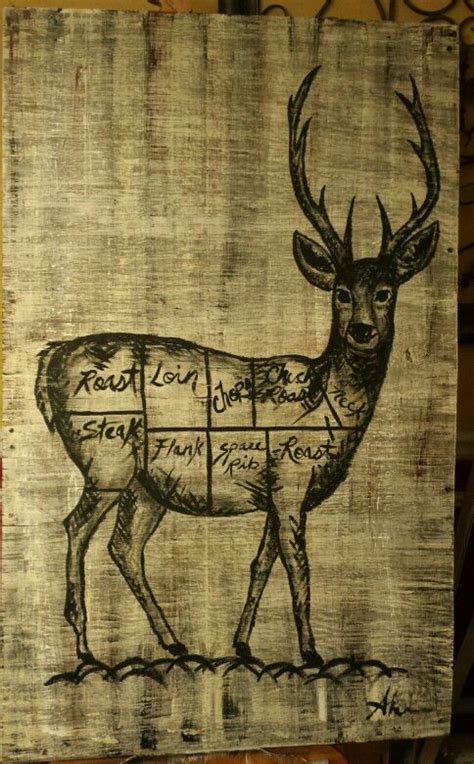 Roast
Loin
Chops
Chuck
Roast
Neck
Steak
Flank
Spare
Rib
Roast